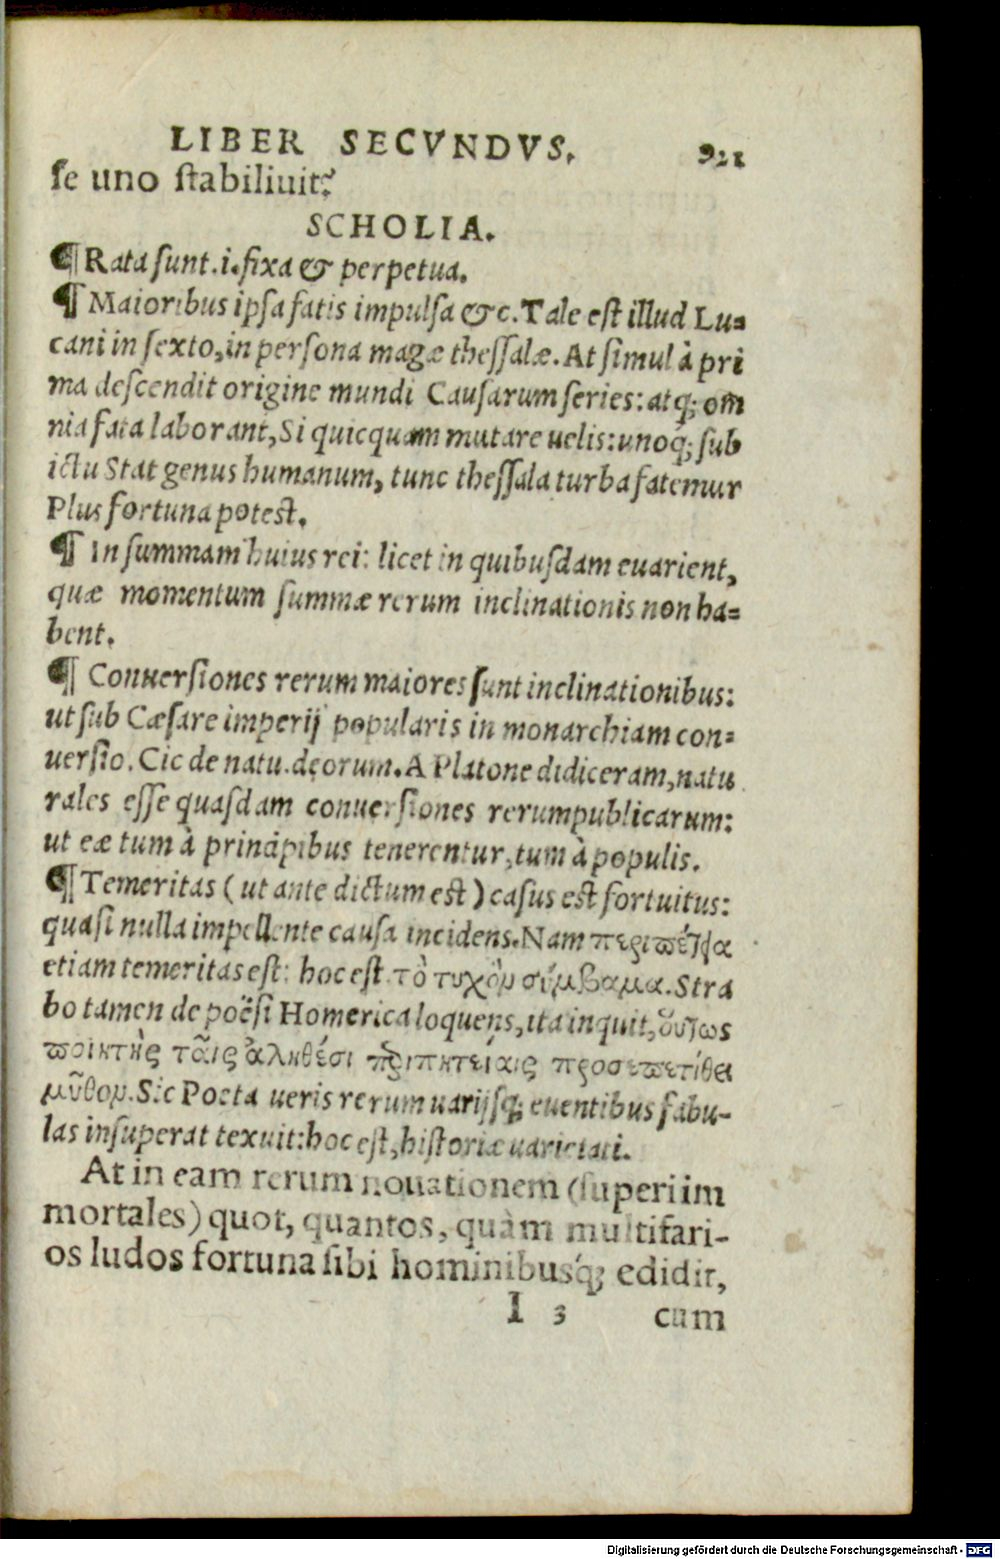 LIBER SECVNDVS. 921
ſe uno ſtabiliuit?
SCHOLIA.
¶ Rata ſunt.i.fixa & perpetua.
¶ Maioribus ipſa fatis impulſa &c. Tale eſt illud Lu=
cani in ſexto, in perſona magæ theſſalæ. At ſimul à pri
ma deſcendit origine mundi Cauſarum ſeries: atq; om̄
nia fata laborant, Si quicquam mutare uelis: unoq́; ſub
ictu Stat genus humanum, tunc theſſala turba fatemur
Plus fortuna poteſt.
¶ In ſummam huius rei: licet in quibuſdam euarient,
quæ momentum ſummæ rerum inclinationis non ha=
bent.
¶ Conuerſiones rerum maiores ſunt inclinationibus:
ut ſub Cæſare imperij popularis in monarchiam con=
uerſio. Cic de natu. deorum. A Platone didiceram, natu
rales eſſe quaſdam conuerſiones rerumpublicarum:
ut eæ tum à principibus tenerentur, tum à populis.
¶ Temeritas (ut ante dictum eſt) caſus eſt fortuitus:
quaſi nulla impellente cauſa incidens. Nam περιπέτεια
etiam temeritas eſt: hoc eſt τὸ τυχὸν σύμβαμα. Stra
bo tamen de poëſi Homerica loquens, ita inquit, οὕτως
ποιητὴς ταῖς ἀληθέσι πριπητείαις προσεπετίθει
μῦθον. Sic Poeta ueris rerum uarijſq; euentibus fabu-
las inſuperat texuit: hoc eſt, hiſtoriæ uarietati.
At in eam rerum nouationem (ſuperi im
mortales) quot, quantos, quàm multifari-
os ludos fortuna ſibi hominibusq́; edidit,
I 3 cum
Digitalisierung gefördert durch die Deutsche Forschungsgemeinschaft - DFG